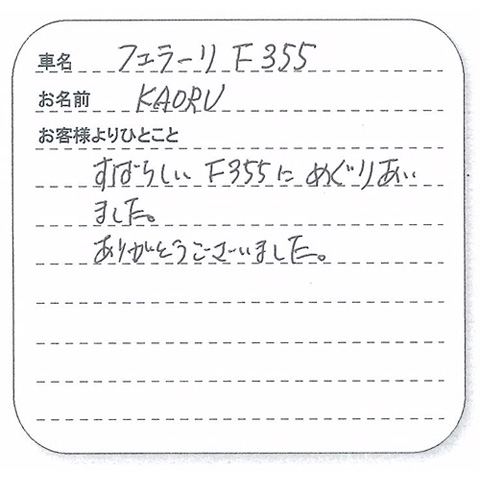 車名 フェラーリ F355
お名前 KAORU
お客様よりひとこと
すばらしい F355に めぐりあい
ました。
ありがとうございました。